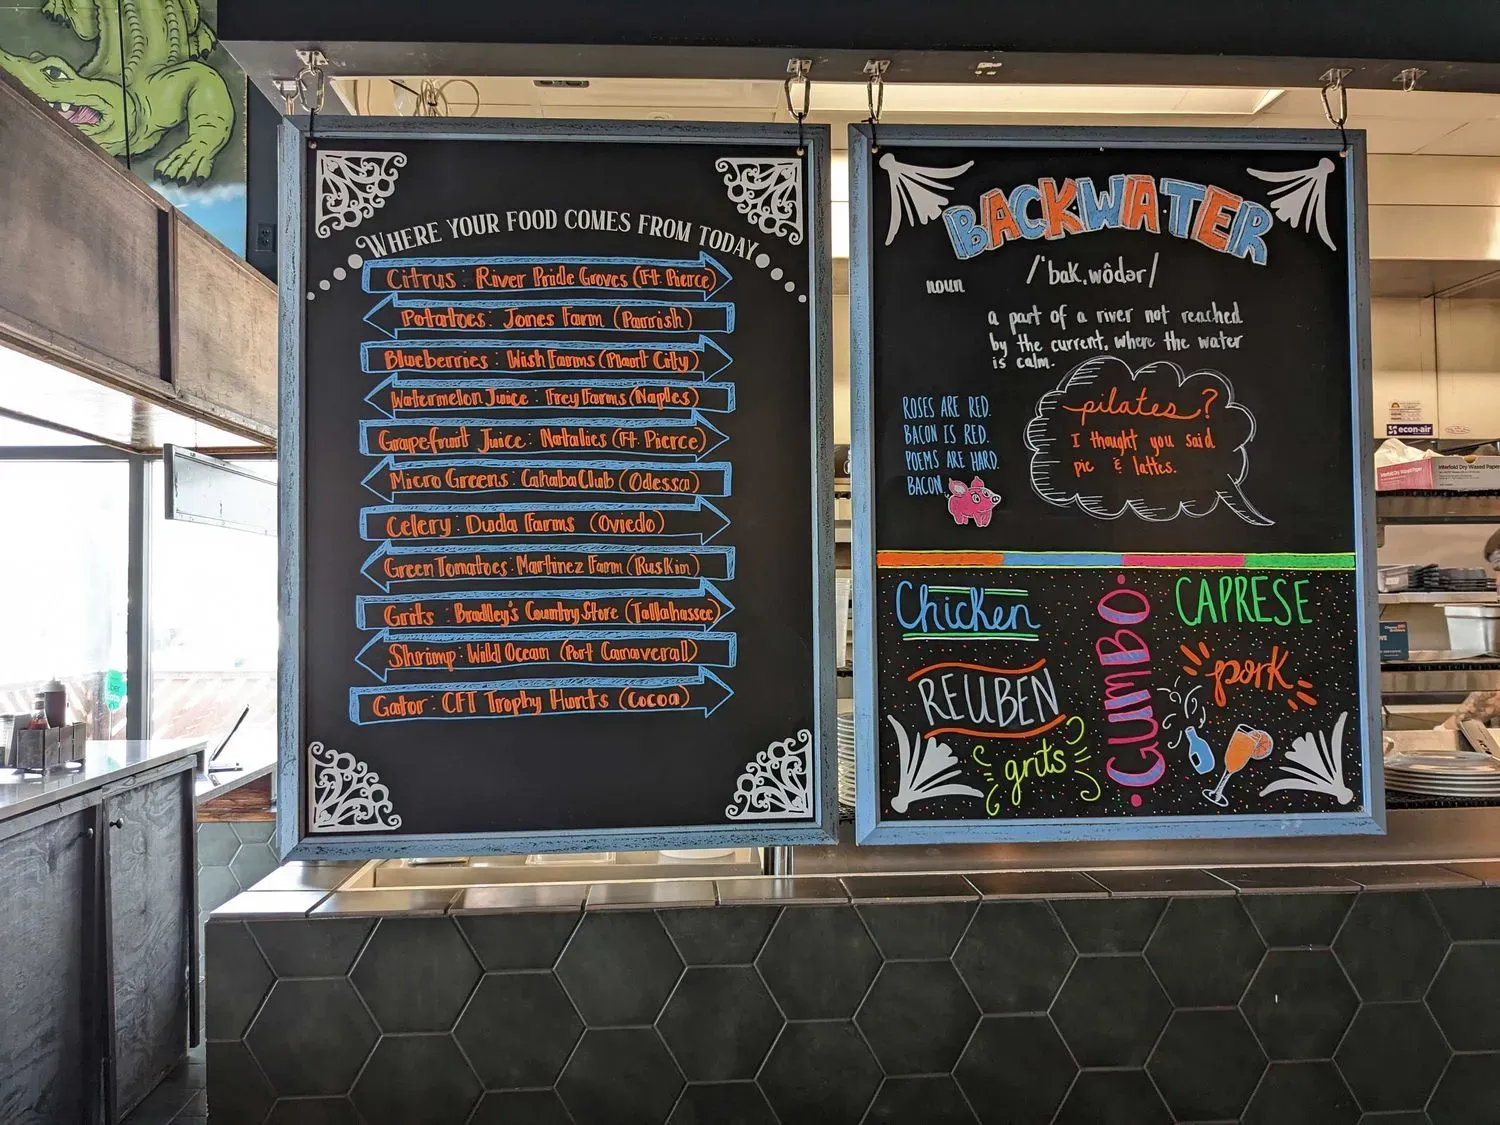 WHERE YOUR FOOD COMES FROM TODAY
Citrus: River Pride Groves (Ft. Pierce)
Potatoes: Jones Farm (Parrish)
Blueberries: Wish Farms (Plant City)
Watermelon Juice: Frey Farms (Naples)
Grapefruit Juice: Natalies (Ft. Pierce)
Micro Greens: Cahaba Club (Odessa)
Celery: Duda Farms (Oviedo)
Green Tomatoes: Martinez Farm (Ruskin)
Grits: Bradley's Country Store (Tallahassee)
Shrimp: Wild Ocean (Port Canaveral)
Gator: CFT Trophy Hunts (Cocoa)
BACKWATER
noun /ˈbak,wôdər/
a part of a river not reached
by the current, where the water
is calm.
ROSES ARE RED.
BACON IS RED.
POEMS ARE HARD.
BACON.
pilates?
I thought you said
pie & lattes.
Chicken
REUBEN
grits
GUMBO
CAPRESE
pork
econ-air
Interfold Dry Waxed Paper